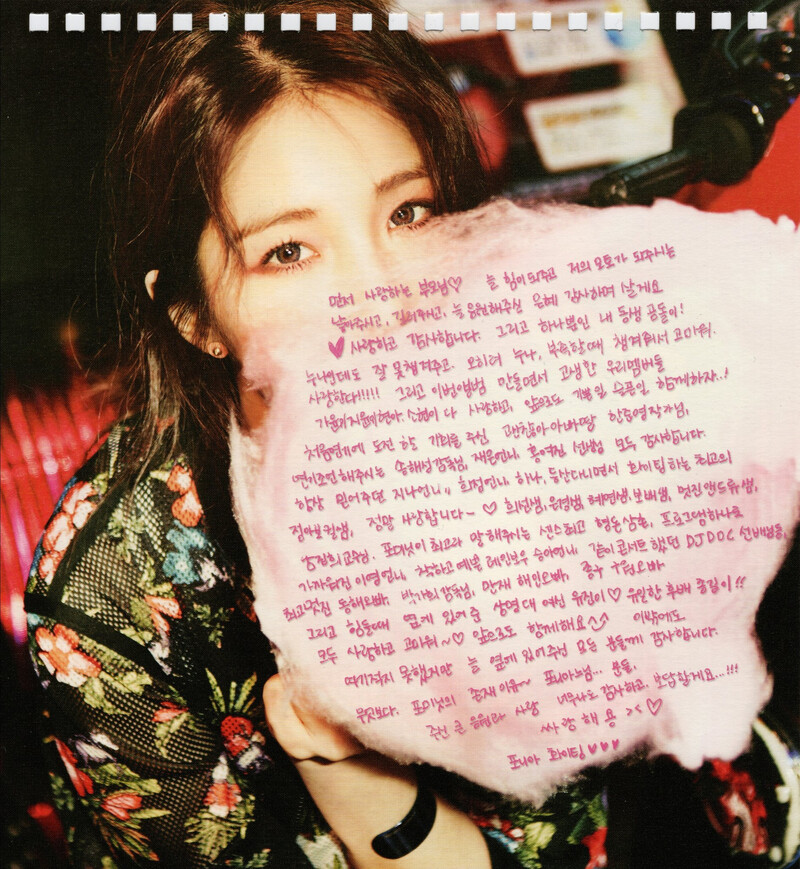 먼저 사랑하는 부모님♡ 늘 힘이 되주고 저의 모토가 되주시는
낳아주시고, 길러주시고, 늘 응원해주신 은혜 감사하며 살게요
♥사랑하고 감사합니다. 그리고 하나뿐인 내 동생 곰돌이!
누나인데도 잘 못챙겨주고. 오히려 누나, 부족할때 챙겨줘서 고마워.
사랑한다!!!!! 그리고 이번앨범 만들면서 고생한 우리멤버들
가윤이지윤이현아.소현이 다 사랑하고, 앞으로도 기쁜일 슬픈일 함께하자..!
처음연기에 도전 한 기회를 주신 괜찮아아빠딸 한승영작가님,
연기조언해주시는 송해성감독님, 재은언니, 홍여진 선생님 모두 감사합니다.
항상 믿어주던 지나언니,, 희정언니, 하나, 등산다니면서 화이팅하는 최고의
정아보컬쌤, 정말 사랑합니다~ ♡ 희선쌤, 은경쌤, 혜연쌤, 보배쌤, 멋진앤드류쌤,
장진희교수님. 포미닛이 최고라 말해주시는 센스최고 형돈삼촌, 프로그램하나요
가자유진 이영언니, 착하고 예쁜 레인보우 승아언니 같이콘서트했던 DJ DOC 선배님들,
최고멋진 동해오빠, 박가희감독님, 만재 해인오빠, 종구 두원오빠
그리고 힘들때 옆에 있어준 상명대 여신 유진이♡ 유일한 후배 종길이!!
모두 사랑하고 고마워~♡ 앞으로도 함께해요^^ 이밖에도
여기적지 못했지만 늘 옆에 있어주신 모든 분들께 감사합니다.
무엇보다. 포미닛의 존재이유~ 포니아느님... 분들,
주신 큰 응원과 사랑 너무나도 감사하고. 보답할게요...!!!
싸랑해용 ><♡
포니아 화이팅 ♥♥♥